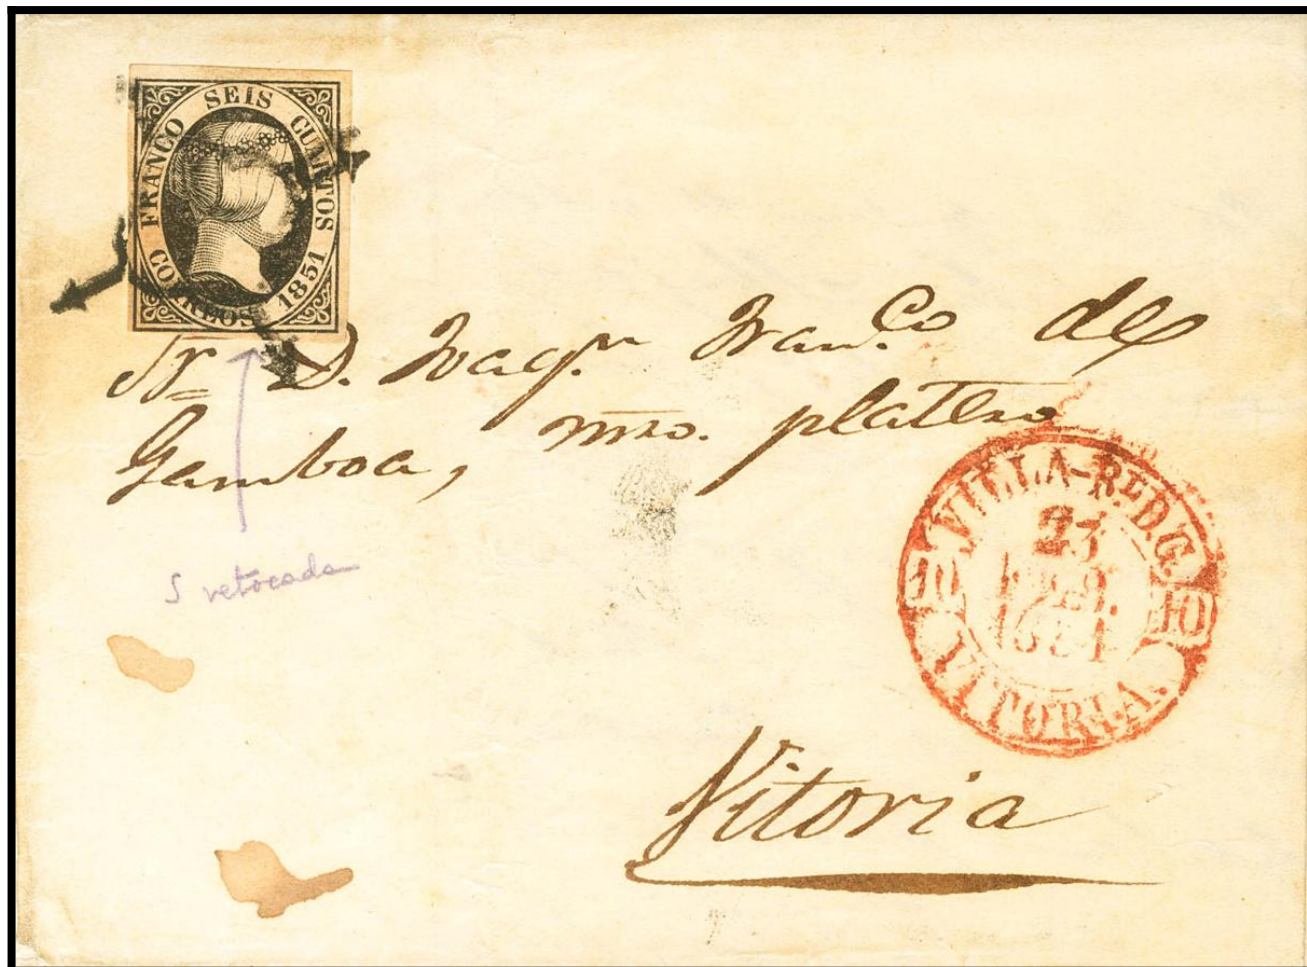 FRANCO SEIS CUARTOS
CORREOS 1851
Sr D. Joaqn Franco de
Gamboa, mro. platero
S retocada
VILLA-Rl D.G.
23
1851
10 10
VITORIA.
Vitoria